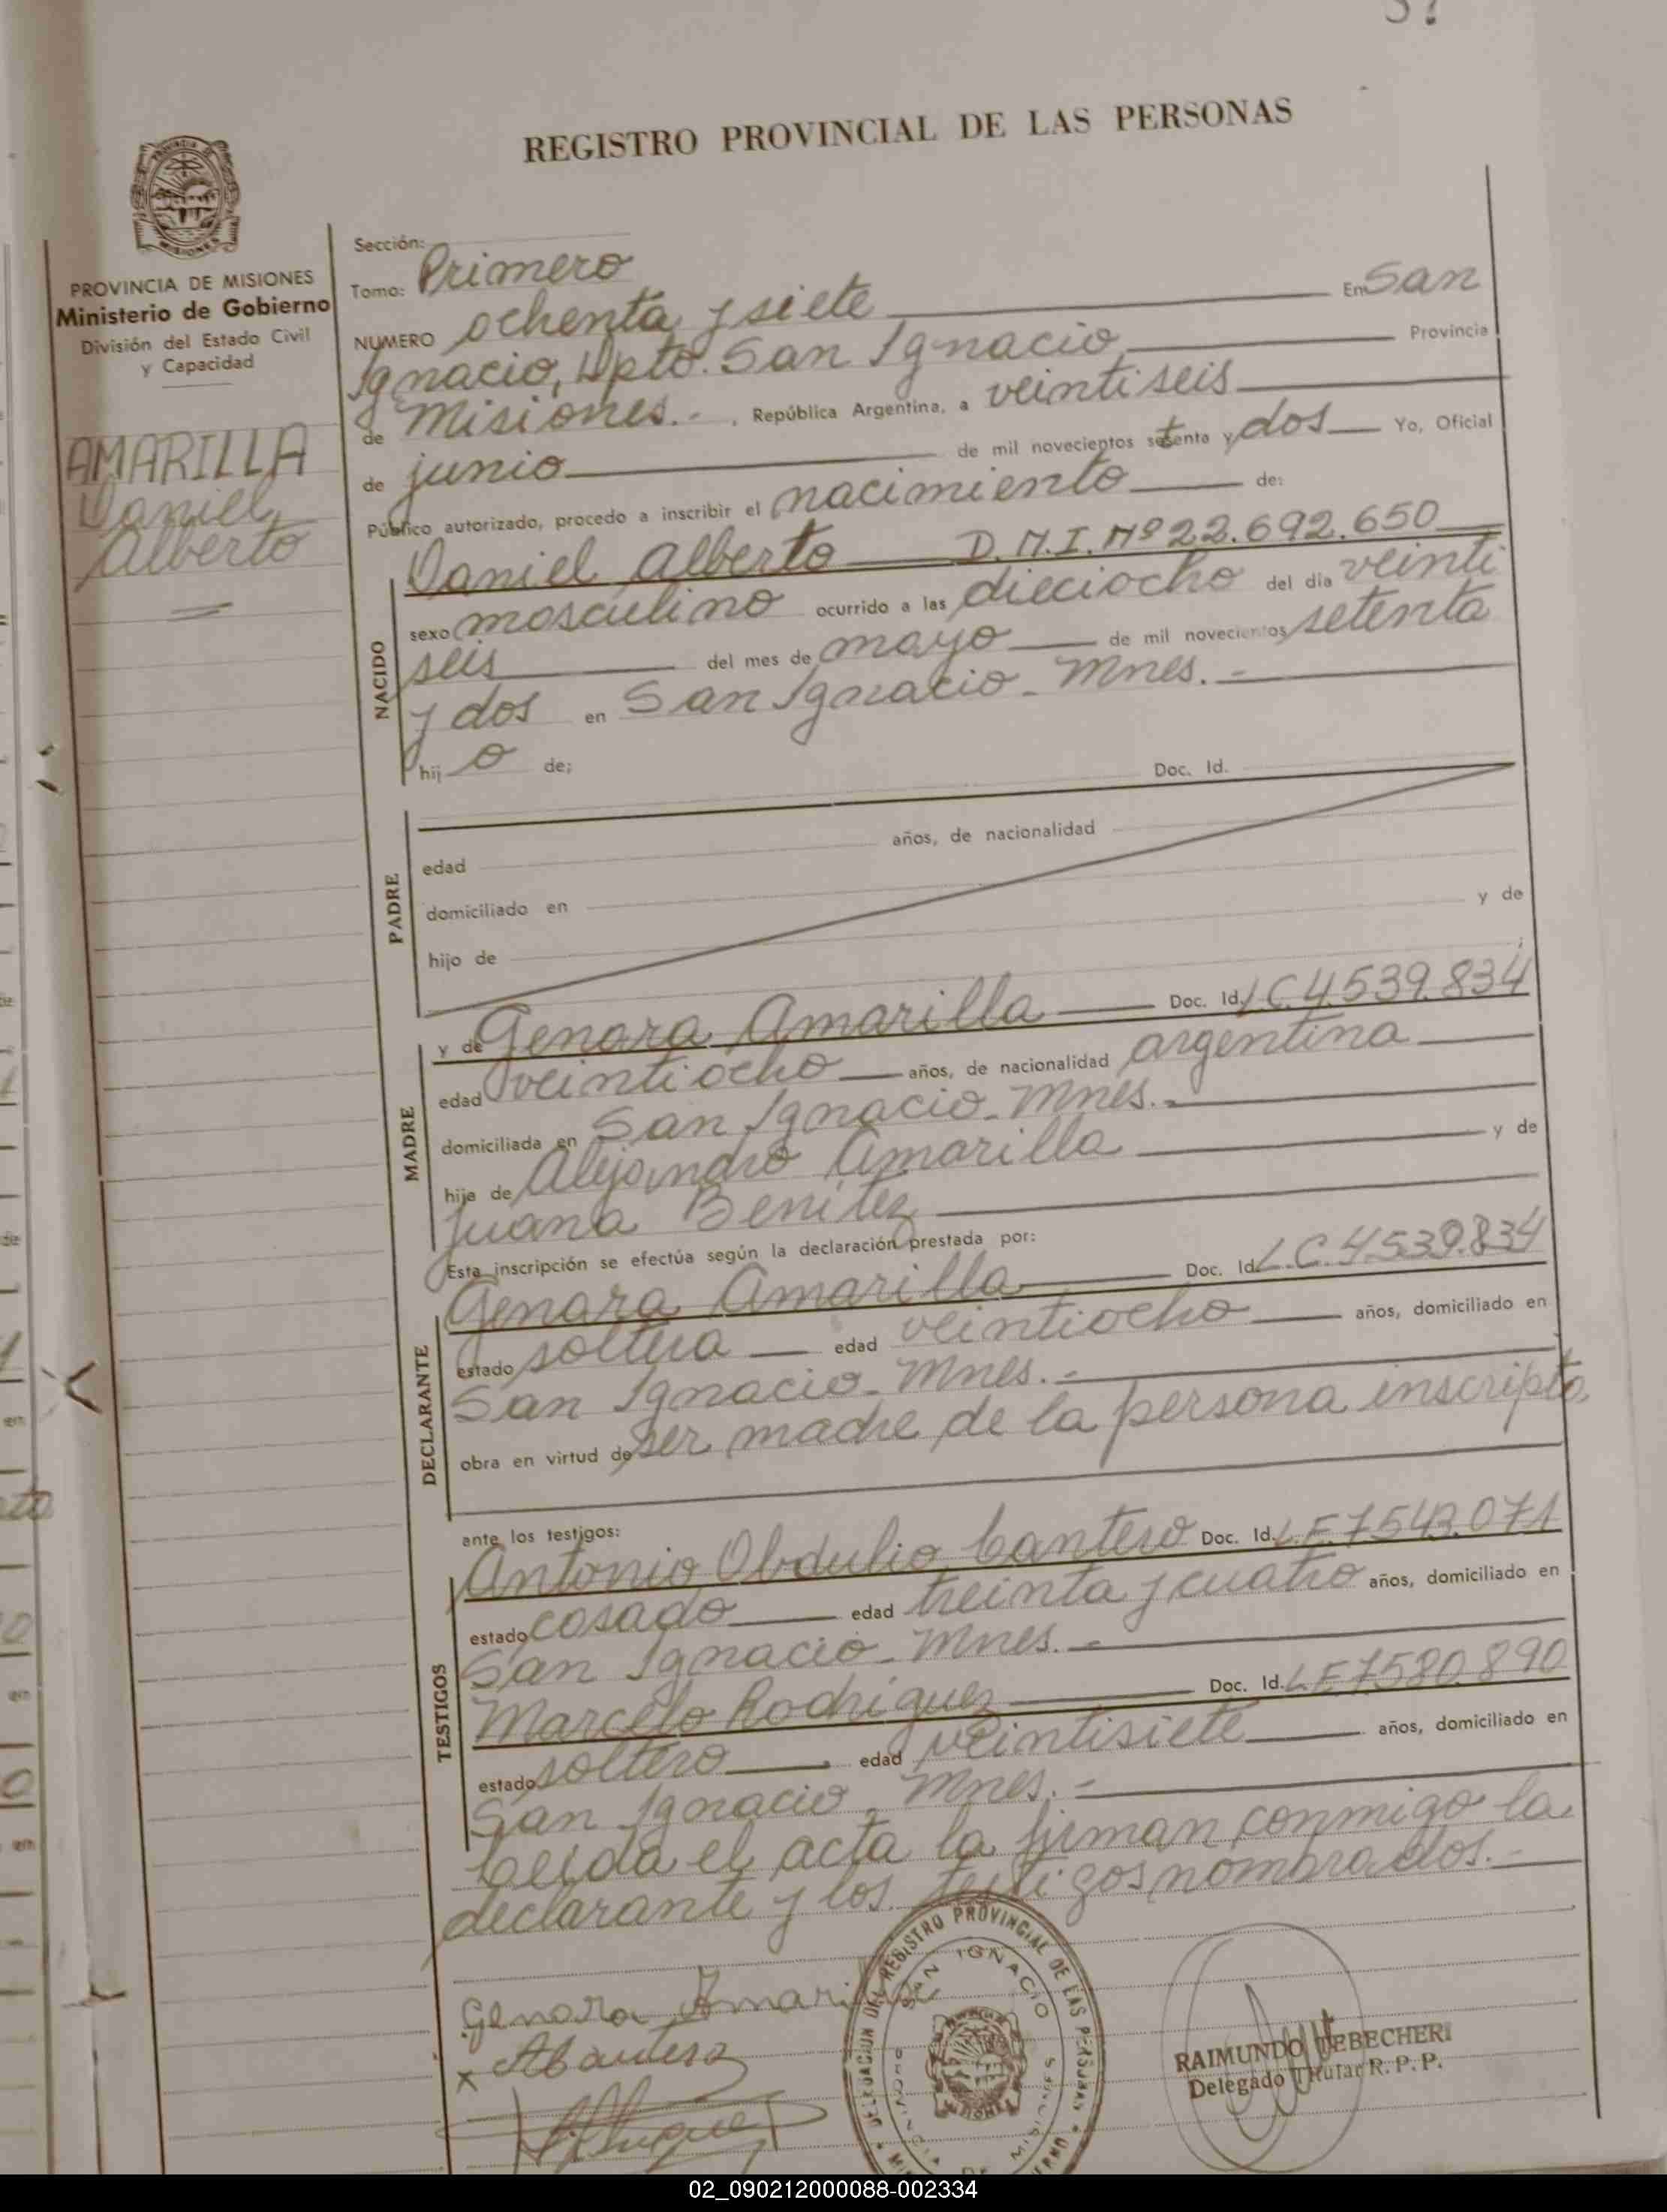 REGISTRO PROVINCIAL DE LAS PERSONAS
PROVINCIA DE MISIONES
Ministerio de Gobierno
División del Estado Civil
y Capacidad
AMARILLA
Daniel
Alberto
Sección:
Tomo: Primero
NUMERO ochenta y siete En San
Ignacio, Dpto. San Ignacio Provincia
de Misiones.- , República Argentina, a veintiseis
de junio de mil novecientos setenta y dos Yo, Oficial
Público autorizado, procedo a inscribir el nacimiento de:
NACIDO
Daniel Alberto D.N.I. Nº 22.692.650
sexo masculino ocurrido a las dieciocho del día veinti
seis del mes de mayo de mil novecientos setenta
y dos en San Ignacio - Mnes. -
hijo de;
PADRE
Doc. Id.
edad años, de nacionalidad
domiciliado en
hijo de y de
MADRE
y de Genara Amarilla Doc. Id. L.C. 4.539.834
edad veintiocho años, de nacionalidad argentina
domiciliada en San Ignacio - Mnes. -
hija de Alejandro Amarilla y de
Juana Benitez
Esta inscripción se efectúa según la declaración prestada por:
DECLARANTE
Genara Amarilla Doc. Id. L.C. 4.539.834
estado soltera edad veintiocho años, domiciliado en
San Ignacio - Mnes. -
obra en virtud de ser madre de la persona inscripta
ante los testigos:
TESTIGOS
Antonio Obdulio Cantero Doc. Id. L.E. 7.543.071
estado casado edad treinta y cuatro años, domiciliado en
San Ignacio - Mnes. -
Marcelo Rodriguez Doc. Id. L.E 7.580.890
estado soltero edad veintisiete años, domiciliado en
San Ignacio - Mnes. -
Leida el acta la firman conmigo la
declarante y los testigos nombrados. -
Genara Amarilla
x ACantero
DELEGACION DEL REGISTRO PROVINCIAL DE LAS PERSONAS
SAN IGNACIO
PROVINCIA DE MISIONES
RAIMUNDO TEBECHERI
Delegado Titular R. P. P.
02_090212000088-002334